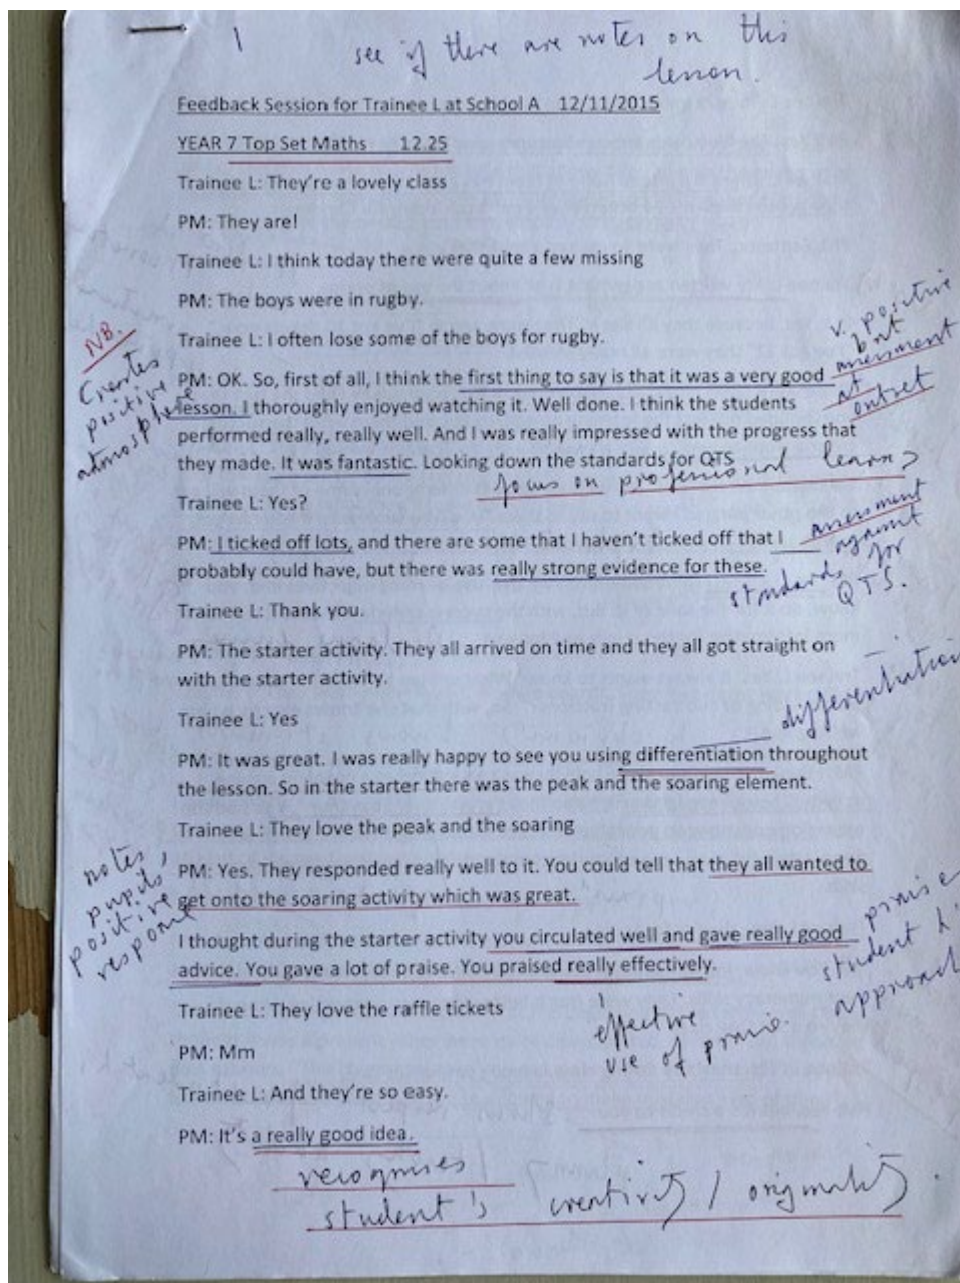 1
see if there are notes on this
lesson.
Feedback Session for Trainee L at School A 12/11/2015
YEAR 7 Top Set Maths 12.25
Trainee L: They're a lovely class
PM: They are!
Trainee L: I think today there were quite a few missing
PM: The boys were in rugby.
Trainee L: I often lose some of the boys for rugby.
NB.
Creates
positive
atmosphere
v. positive
but
assessment
at
outset
PM: OK. So, first of all, I think the first thing to say is that it was a very good
lesson. I thoroughly enjoyed watching it. Well done. I think the students
performed really, really well. And I was really impressed with the progress that
they made. It was fantastic. Looking down the standards for QTS
focus on professional learn
Trainee L: Yes?
PM: I ticked off lots, and there are some that I haven't ticked off that I
probably could have, but there was really strong evidence for these.
assessment
against
standards for
QTS.
Trainee L: Thank you.
PM: The starter activity. They all arrived on time and they all got straight on
with the starter activity.
Trainee L: Yes
differentiation
PM: It was great. I was really happy to see you using differentiation throughout
the lesson. So in the starter there was the peak and the soaring element.
Trainee L: They love the peak and the soaring
notes
pupils'
positive
response
PM: Yes. They responded really well to it. You could tell that they all wanted to
get onto the soaring activity which was great.
I thought during the starter activity you circulated well and gave really good
advice. You gave a lot of praise. You praised really effectively.
praise
student
approach
Trainee L: They love the raffle tickets
effective
use of praise.
PM: Mm
Trainee L: And they're so easy.
PM: It's a really good idea.
recognises
student's creativity / originality.